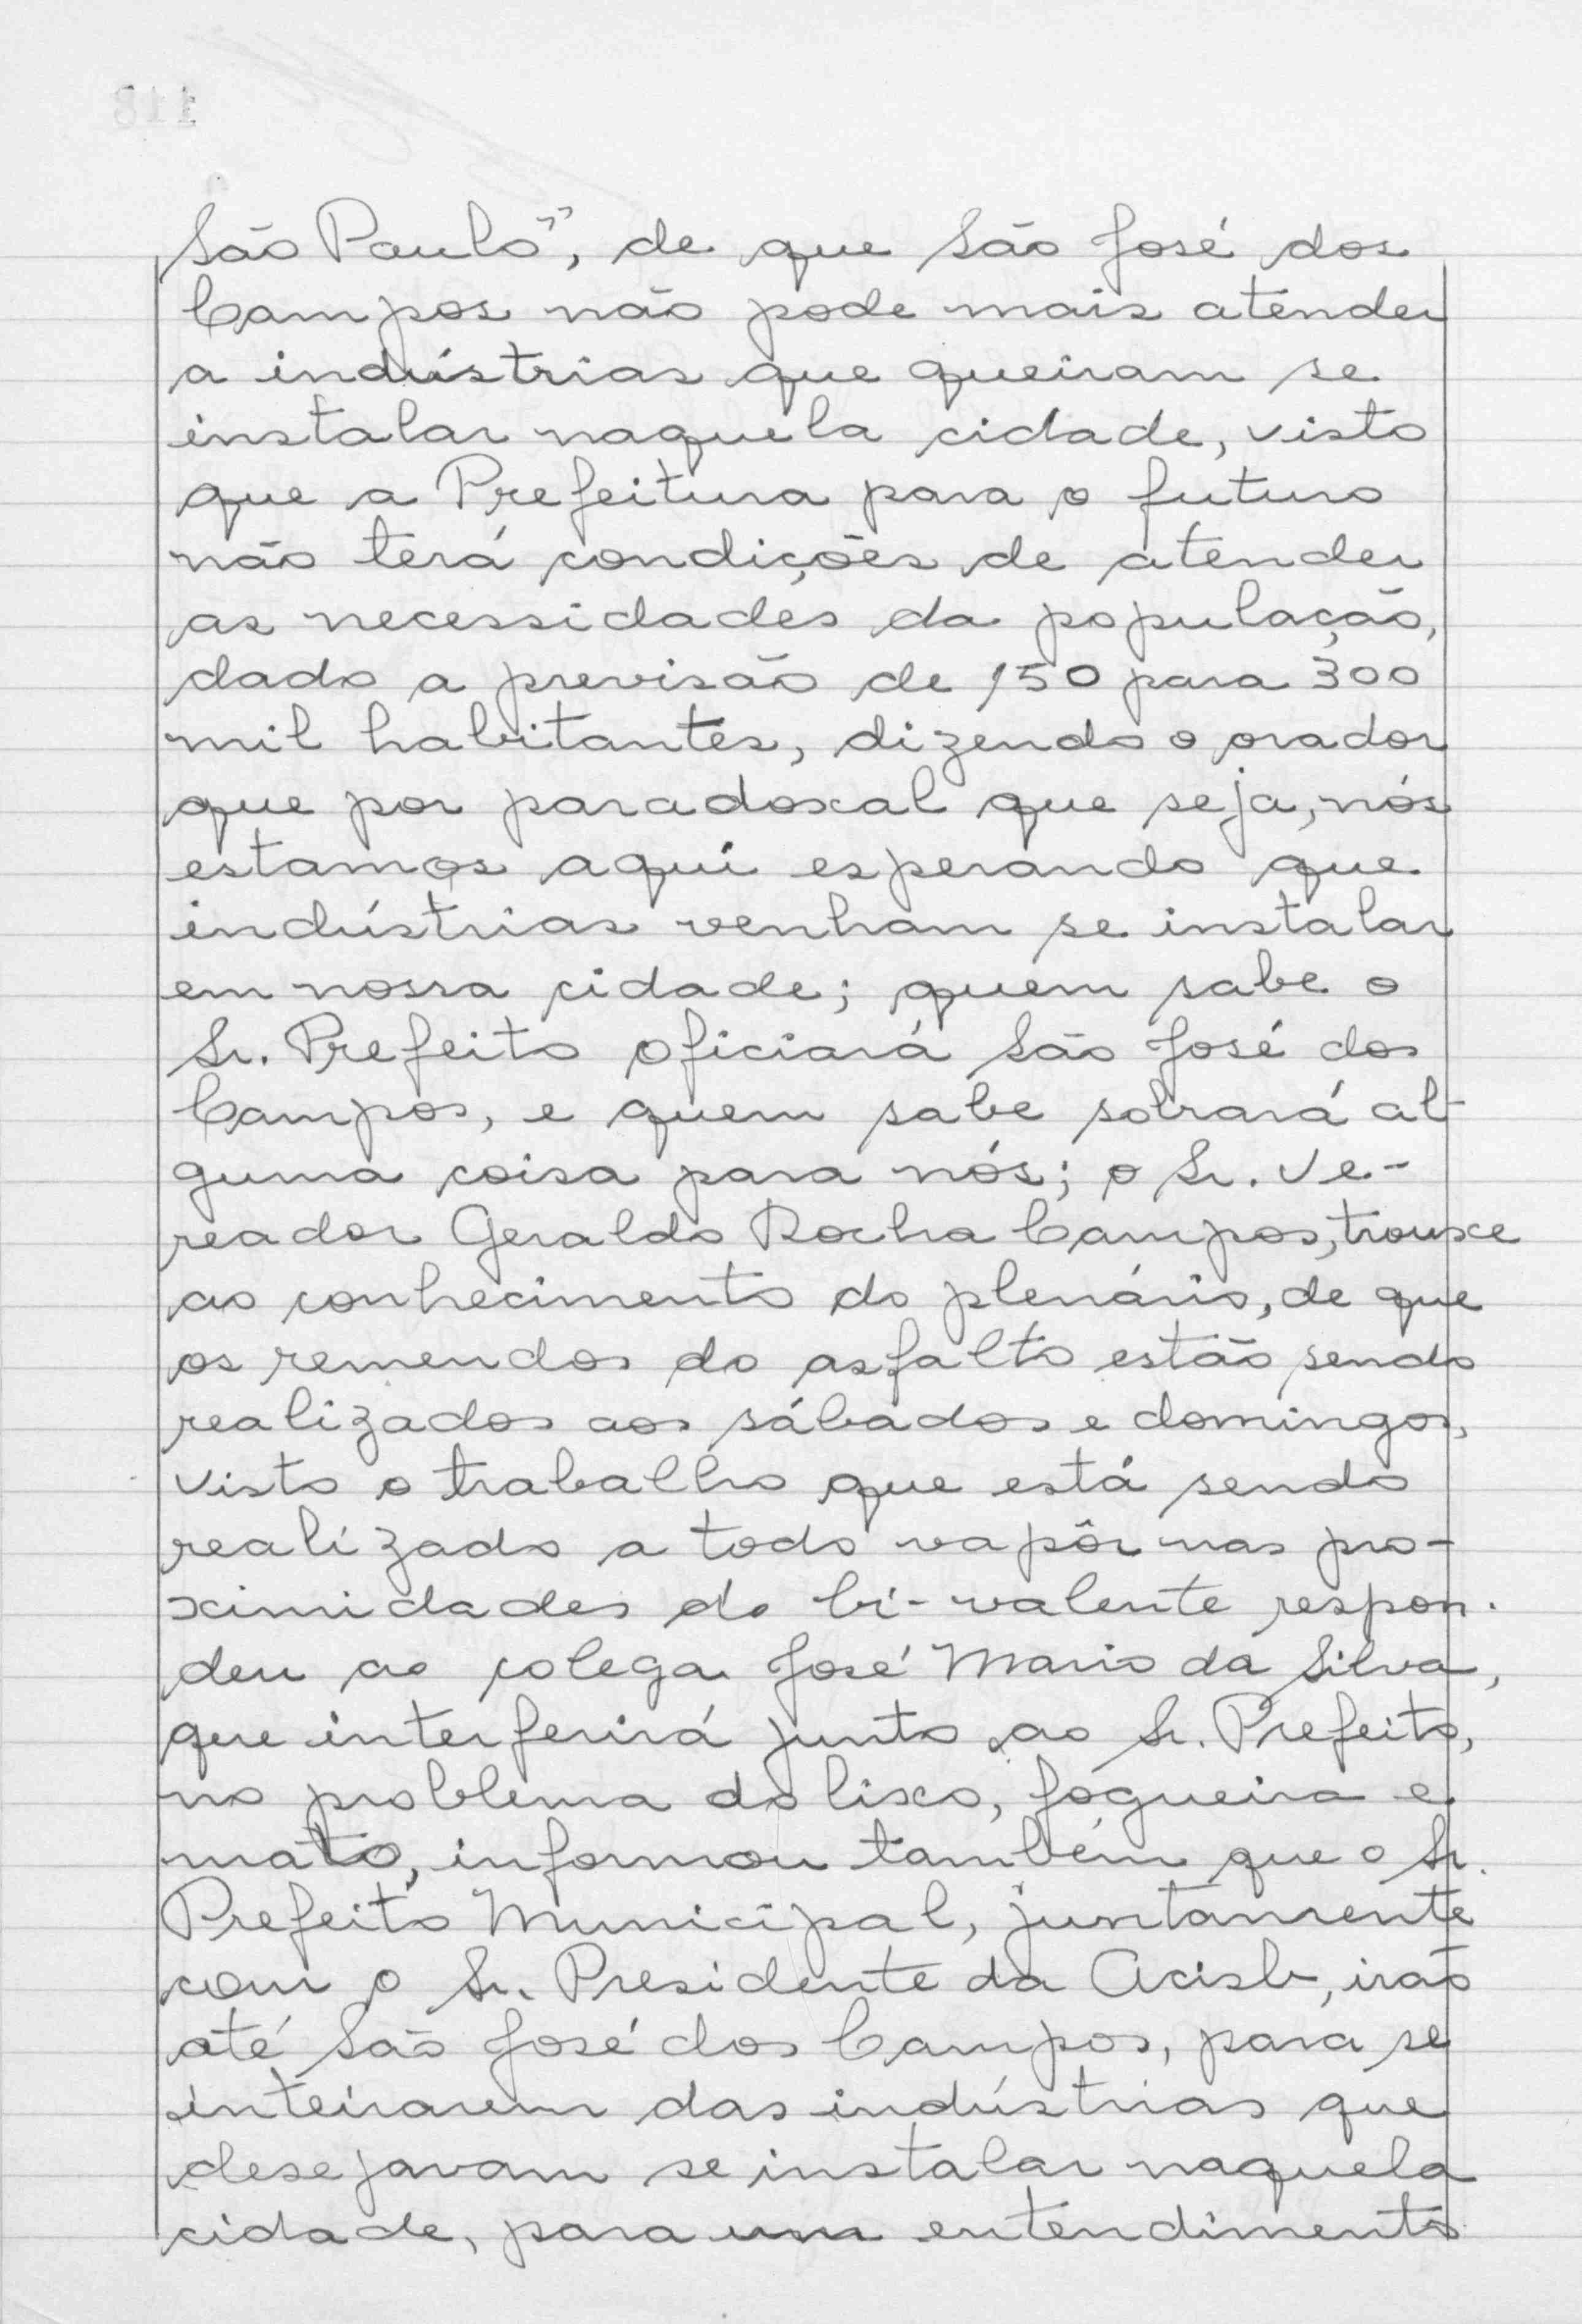 São Paulo", de que São José dos
Campos não pode mais atender
a indústrias que queiram se
instalar naquela cidade, visto
que a Prefeitura para o futuro
não terá condições de atender
as necessidades da população,
dado a previsão de 150 para 300
mil habitantes, dizendo o orador
que por paradoxal que seja, nós
estamos aqui esperando que
indústrias venham se instalar
em nossa cidade; quem sabe o
Sr. Prefeito oficiará São José dos
Campos, e quem sabe sobrará al-
guma coisa para nós; o Sr. Ve-
reador Geraldo Rocha Campos, trouxe
ao conhecimento do plenário, de que
os remendos do asfalto estão sendo
realizados aos sábados e domingos,
visto o trabalho que está sendo
realizado a todo vapôr nas pro-
ximidades do bi-valente respon-
deu ao colega José Mario da Silva,
que interferirá junto ao Sr. Prefeito,
no problema do lixo, fogueira e
mato, informou também que o Sr.
Prefeito Municipal, juntamente
com o Sr. Presidente da Acisb, irão
até São José dos Campos, para se
inteirarem das indústrias que
desejavam se instalar naquela
cidade, para um entendimento